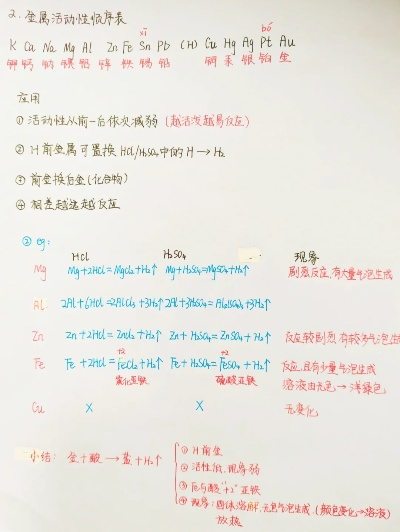 2. 金属活动性顺序表
xī bó
K Ca Na Mg Al Zn Fe Sn Pb (H) Cu Hg Ag Pt Au
钾 钙 钠 镁 铝 锌 铁 锡 铅 铜 汞 银 铂 金
应用
① 活动性从前→后依次减弱 (越活泼越易反应)
② H前金属可置换HCl/H₂SO₄中的H→H₂
③ 前金换后金(化合物)
④ 相差越远越反应
② eg:
HCl H₂SO₄ 现象
Mg Mg+2HCl=MgCl₂+H₂↑ Mg+H₂SO₄=MgSO₄+H₂↑ 剧烈反应,有大量气泡生成
Al 2Al+6HCl=2AlCl₃+3H₂↑ 2Al+3H₂SO₄=Al₂(SO₄)₃+3H₂↑
Zn Zn+2HCl=ZnCl₂+H₂↑ Zn+H₂SO₄=ZnSO₄+H₂↑ 反应较剧烈,有较多气泡生
+2 +2
Fe Fe+2HCl=FeCl₂+H₂↑ Fe+H₂SO₄=FeSO₄+H₂↑ 反应,且有少量气泡生成
氯化亚铁 硫酸亚铁 溶液由无色→浅绿色
Cu X X 无变化
小结: 金+酸→盐+H₂↑
① H前金
② 活性低,现象弱
③ Fe与酸"+2"亚铁
④ 现象:固体溶解,无色气泡生成,(颜色变化→溶液)
放热